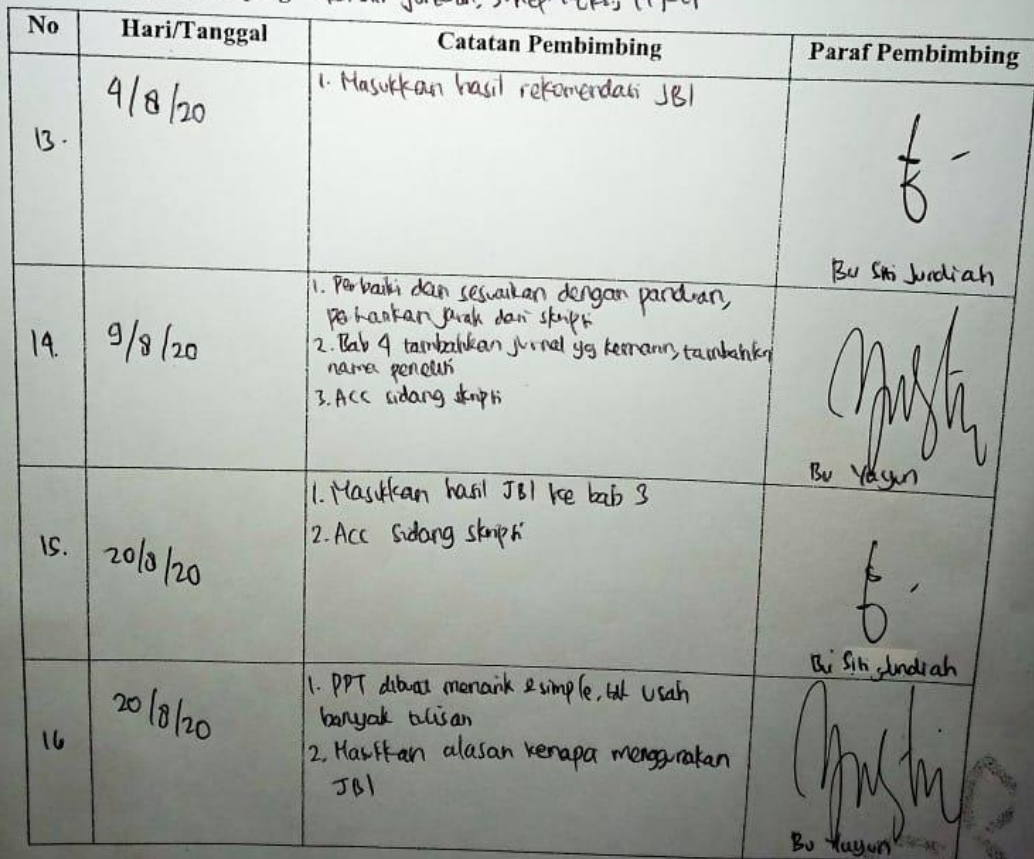 No Hari/Tanggal Catatan Pembimbing Paraf Pembimbing
13. 4/8/20 1. Masukkan hasil rekomendasi JBI
Bu Siti Jundiah
14. 9/8/20 1. Perbaiki dan sesuaikan dengan panduan,
jarak dari skripsi
2. Bab 4 tambahkan jurnal yg kemarin, tambahkan
nama peneliti
3. Acc sidang skripsi
Bu Yuyun
15. 20/8/20 1. Masukkan hasil JBI ke bab 3
2. Acc sidang skripsi
Bu Siti Jundiah
16 20/8/20 1. PPT dibuat menarik & simple, tak usah
banyak tulisan
2. Masukkan alasan kenapa menggunakan
JBI
Bu Yuyun